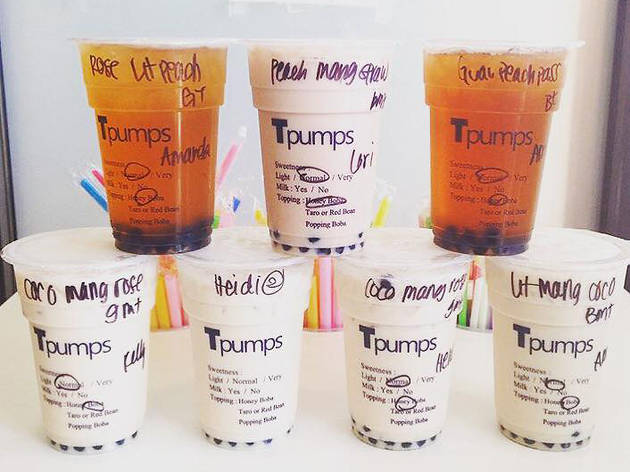 ROSE Lt PEACH
GT
Tpumps
Amanda
Sweetness:
Light / Normal / Very
Milk : Yes / No
Topping : Honey Boba
Taro or Red Bean
Popping Boba
Peach mang straw
bmt
Tpumps
Lori
Sweetness:
Light / Normal / Very
Milk : Yes / No
Topping : Honey Boba
Taro or Red Bean
Popping Boba
Guav Peach Pass
Bt
Tpumps
Sweetness:
Light / Normal / Very
Milk : Yes / No
Topping : Honey Boba
Taro or Red Bean
Popping Boba
COCO mang rose
gmt
Tpumps
Kelly
Sweetness:
Light / Normal / Very
Milk : Yes / No
Topping : Honey Boba
Taro or Red Bean
Popping Boba
Heidi 2
Tpumps
Sweetness:
Light / Normal / Very
Milk : Yes / No
Topping : Honey Boba
Taro or Red Bean
Popping Boba
COCO mang
gmt
Tpumps
Sweetness:
Light / Normal / Very
Milk : Yes / No
Topping : Honey Boba
Taro or Red Bean
Popping Boba
Lt mang coco
Bmt
Tpumps
Sweetness:
Light / Normal / Very
Milk : Yes / No
Topping : Honey Boba
Taro or Red Bean
Popping Boba